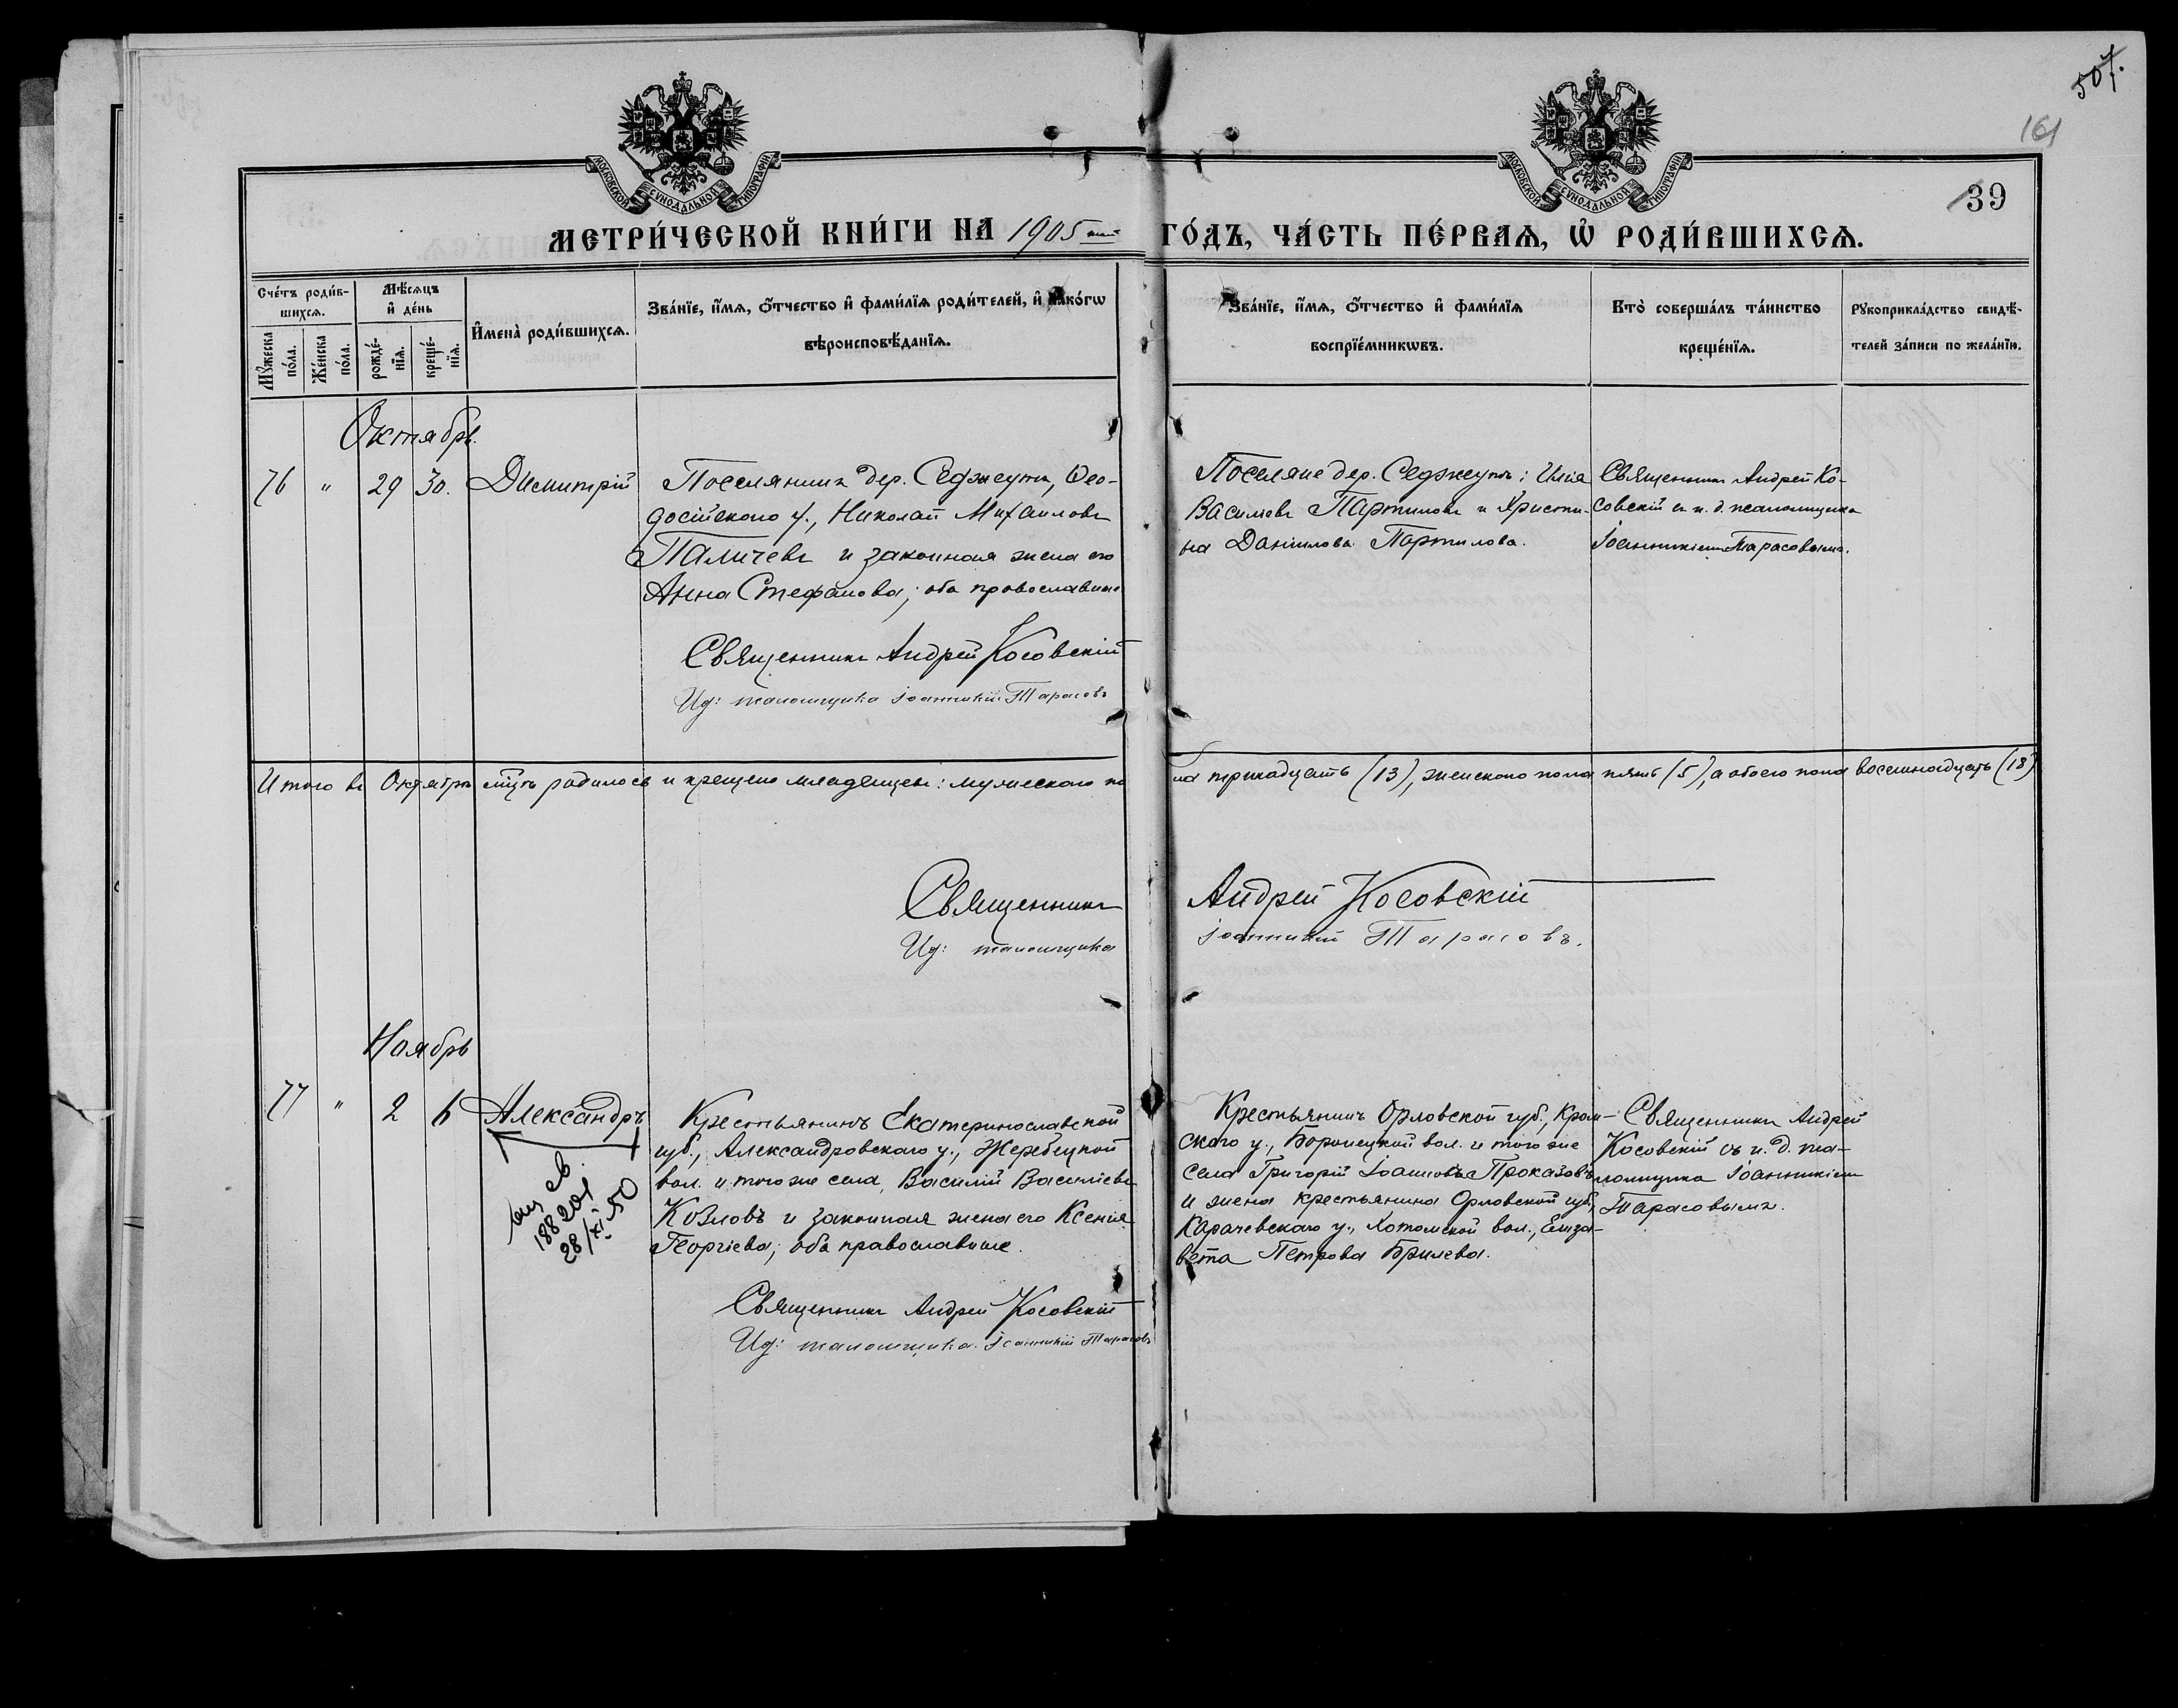 507.
161
39
МОСКОВСКОЙ СѴНОДАЛЬНОЙ ТИПОГРАФІИ
МОСКОВСКОЙ СѴНОДАЛЬНОЙ ТИПОГРАФІИ
МЕТРИ́ЧЕСКОЙ КНИ́ГИ НА 1905 го́дъ, ЧА́СТЬ ПЕ́РВАѦ, Ѡ҆ РОДИ́ВШИХСѦ.
Сче́тъ роди́в-
шихсѧ.
Мꙋ́жеска
по́ла.
Же́нска
по́ла.
Мѣ́сѧцъ
и҆ де́нь
рожде́-
нїѧ.
креще́-
нїѧ.
И҆мена̀ роди́вшихсѧ.
Зва́нїе, и҆́мѧ, ѻ҆́тчество и҆ фами́лїѧ роди́телей, и҆ како́гѡ
вѣроисповѣ́данїѧ.
Зва́нїе, и҆́мѧ, ѻ҆́тчество и҆ фами́лїѧ
воспрїе́мникѡвъ.
Кто̀ соверша́лъ та́инство
креще́нїѧ.
Рꙋкоприкла́дство свидѣ́-
телей за́писи по жела́нїю.
Октябрь.
76 " 29 30. Димитрій
Поселянинъ дер. Седжеутъ, Ѳео-
досійскаго у., Николай Михаиловъ
Паличевъ и законная жена его
Анна Стефанова; оба православные
Священникъ Андрей Косовскій
И.д: псаломщика Іоанникій Тарасовъ
Поселяне дер. Седжеутъ: Илія
Василіевъ Партиловъ и Христи-
на Даніилова Партилова.
Священникъ Андрей Ко-
совскій съ и. д. псаломщика
Іоанникіемъ Тарасовымъ.
Итого въ Октябрѣ мѣсяцѣ родилось и крещено младенцевъ: мужескаго по
ла тринадцать (13), женскаго пола пять (5), а обоего пола восемнадцать (18)
Священникъ Андрей Косовскій
И.д: псаломщика Іоанникій Тарасовъ.
Ноябрь
77 " 2 6 Александръ
188201
28/XI 50
Крестьянинъ Екатеринославской
губ., Александровскаго у., Жеребецкой
вол. и того же села, Василій Василіевъ
Козловъ и законная жена его Ксенія
Георгіева; оба православные.
Священникъ Андрей Косовскій
И.д: псаломщика Іоанникій Тарасовъ
Крестьянинъ Орловской губ., Кром-
скаго у., Боронецкой вол. и того же
села Григорій Іоанновъ Проказовъ
и жена крестьянина Орловской губ.,
Карачевскаго у., Хотомской вол., Елиза-
вета Петрова Брилева.
Священникъ Андрей
Косовскій съ и. д. пса-
ломщика Іоанникіемъ
Тарасовымъ.